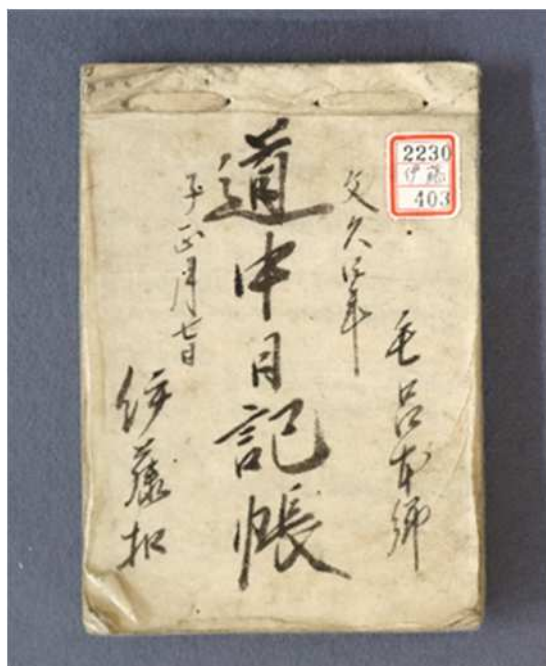 2230
伊藤
403
毛呂本郷
文久四年
道中日記帳
子正月七日
伊藤扣